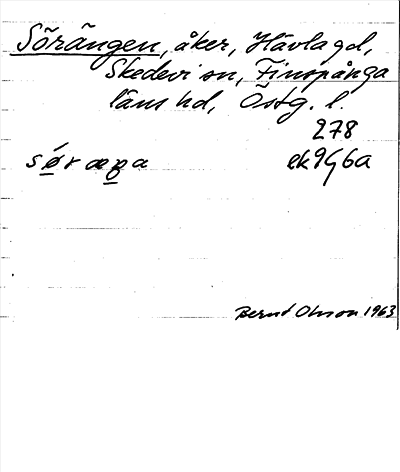 Sörängen, åker, Hävla gd,
Skedevi sn, Finspånga
läns hd, Östg. l.
278
ek 9G6a
Bernt Olsson 1963